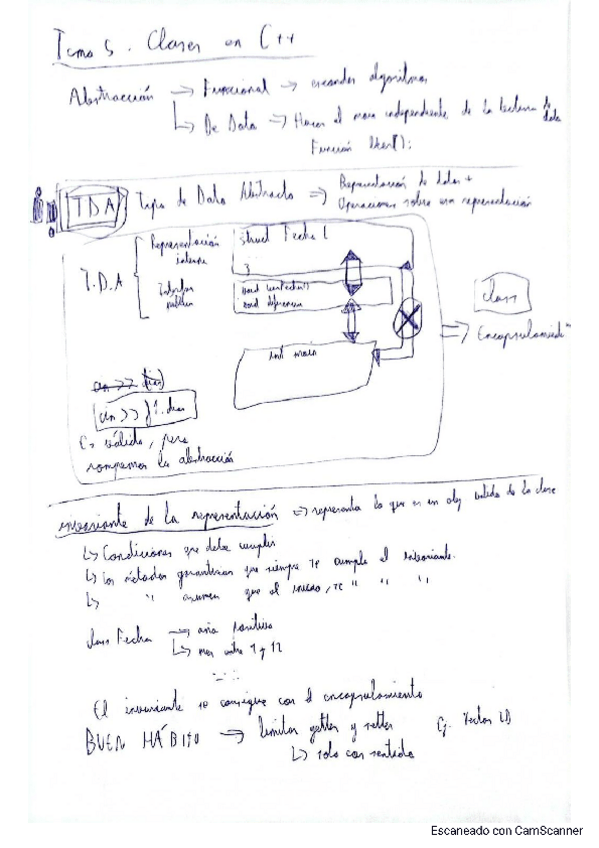 Tema 5. Clases en C++
Abstracción → Funcional → creando algoritmos
↳ De Dato → Hacer el más independiente de la lectura de datos
Función leer();
TDA Tipo de Dato Abstracto ⇒ Representación de datos +
Operaciones sobre esa representación
T.D.A
Representación
interna
struct Fecha {
}
Interfaz
pública
void
void
int main
clase
⇒ Encapsulamient
cin >> dia
cin >> f1.dia
Es válido, pero
rompemos la abstracción
invariante de la representación ⇒ representa lo que es un obj valido de la clase
↳ Condiciones que debe cumplir
↳ Los métodos garantizan que siempre se cumple el invariante.
↳ " asumen que al inicio, se " " "
class Fecha → año positivo
↳ mes entre 1 y 12
El invariante se consigue con el encapsulamiento
BUEN HÁBITO → limitar getter y setter Ej. Vector LD
↳ solo con sentido
Escaneado con CamScanner